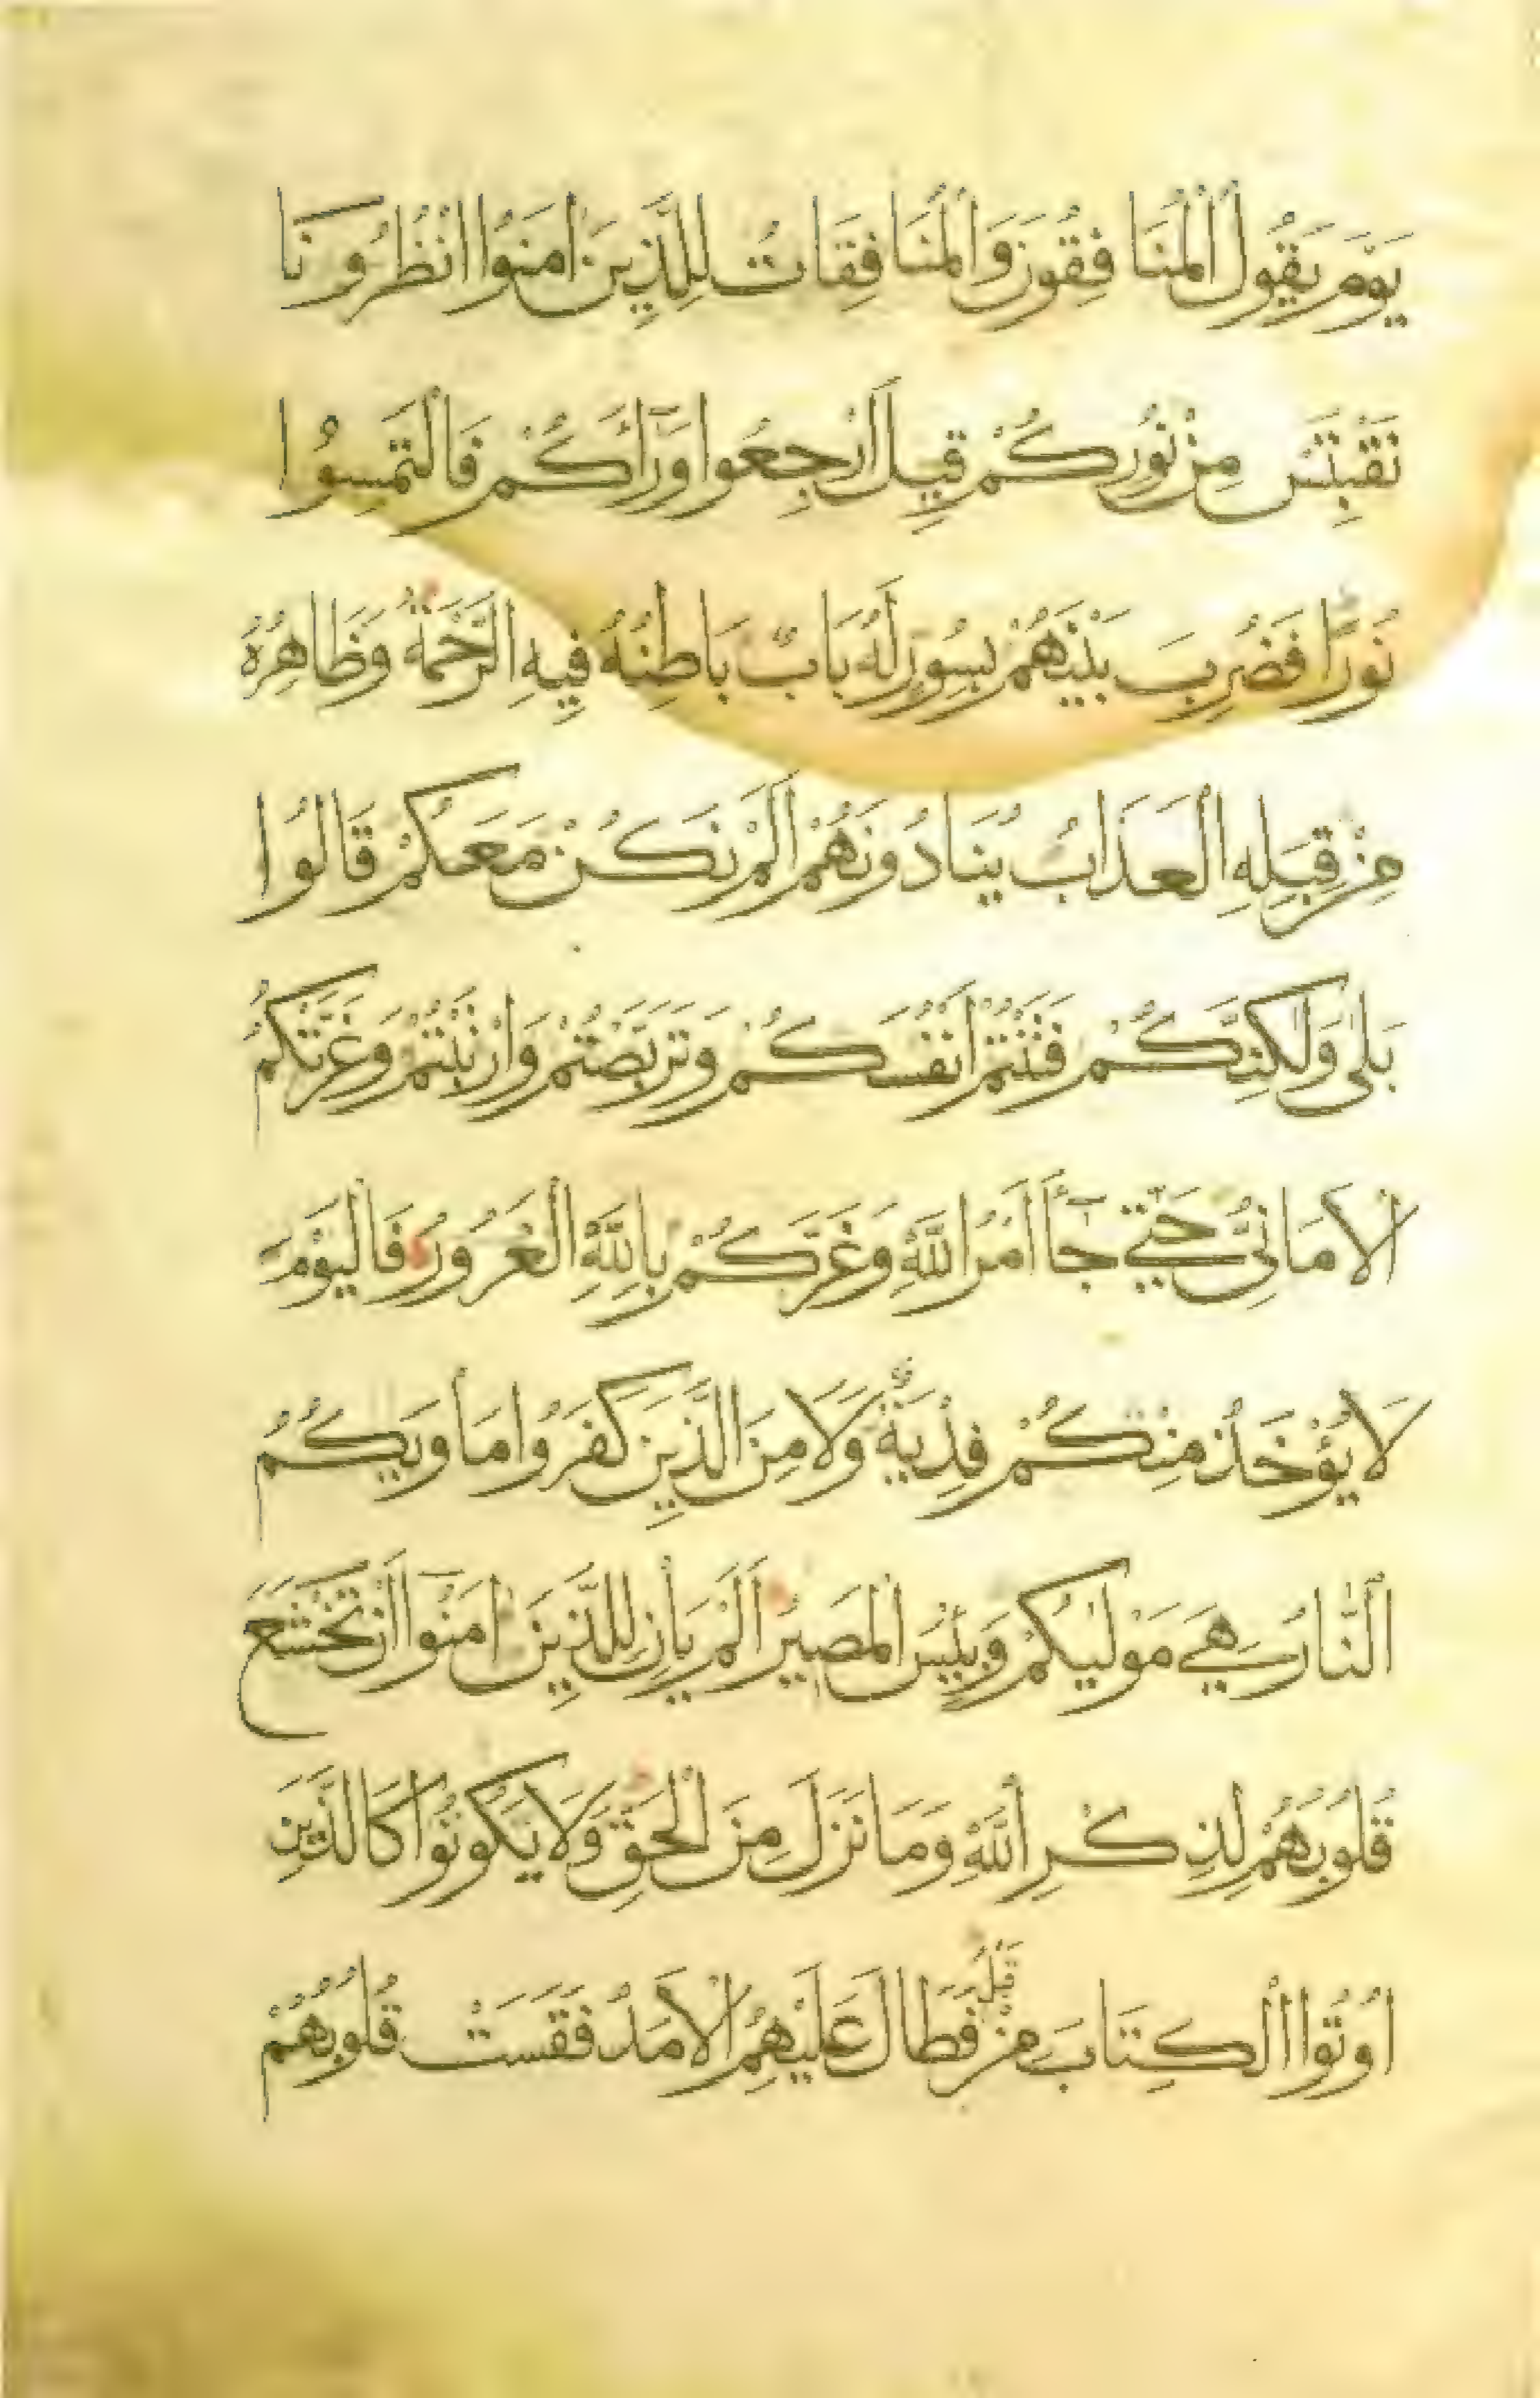 يَوْمَ يَقُولُ الْمُنَافِقُونَ وَالْمُنَافِقَاتُ لِلَّذِينَ اٰمَنُوا انْظُرُونَا
نَقْتَبِسْ مِنْ نُورِكُمْ قِيلَ ارْجِعُوا وَرَآءَكُمْ فَالْتَمِسُوا
نُورًا فَضُرِبَ بَيْنَهُمْ بِسُورٍ لَهُ بَابٌ بَاطِنُهُ فِيهِ الرَّحْمَةُ وَظَاهِرُهُ
مِنْ قِبَلِهِ الْعَذَابُ يُنَادُونَهُمْ اَلَمْ نَكُنْ مَعَكُمْ قَالُوا
بَلٰى وَلٰكِنَّكُمْ فَتَنْتُمْ اَنْفُسَكُمْ وَتَرَبَّصْتُمْ وَارْتَبْتُمْ وَغَرَّتْكُمُ
الْاَمَانِيُّ حَتّٰى جَآءَ اَمْرُ اللّٰهِ وَغَرَّكُمْ بِاللّٰهِ الْغَرُورُ فَالْيَوْمَ
لَا يُؤْخَذُ مِنْكُمْ فِدْيَةٌ وَلَا مِنَ الَّذِينَ كَفَرُوا مَأْوٰيكُمُ
النَّارُ هِيَ مَوْلٰيكُمْ وَبِئْسَ الْمَصِيرُ اَلَمْ يَأْنِ لِلَّذِينَ اٰمَنُوٓا اَنْ تَخْشَعَ
قُلُوبُهُمْ لِذِكْرِ اللّٰهِ وَمَا نَزَلَ مِنَ الْحَقِّ وَلَا يَكُونُوا كَالَّذِينَ
اُوتُوا الْكِتَابَ مِنْ قَبْلُ فَطَالَ عَلَيْهِمُ الْاَمَدُ فَقَسَتْ قُلُوبُهُمْ